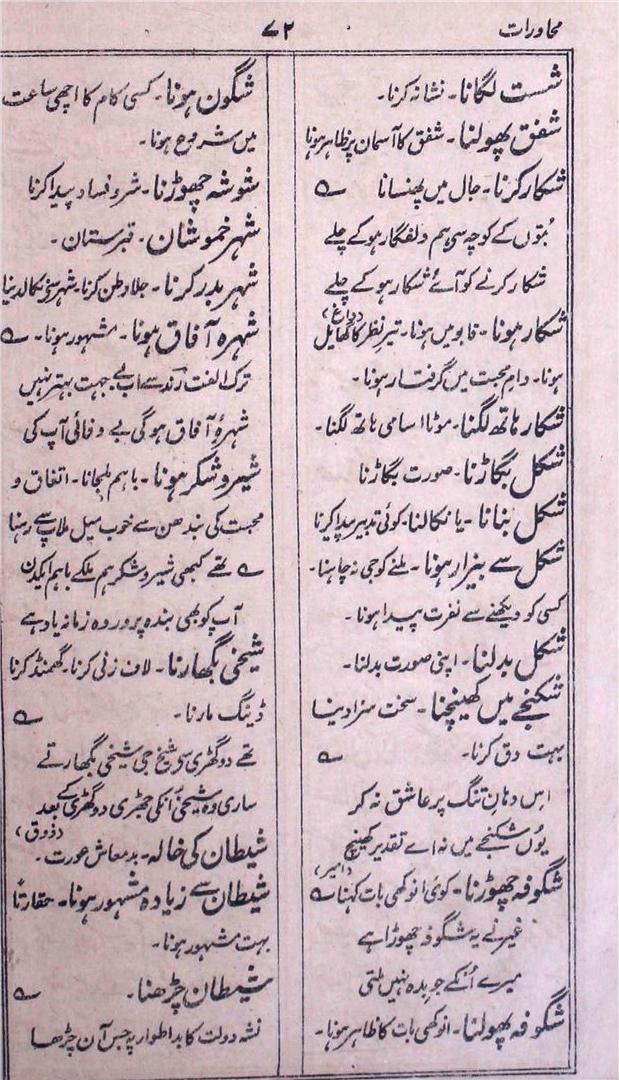 محاورات
۷۲
شست لگانا۔ نشانہ کرنا۔
شفق پھولنا۔ شفق کا آسمان پر ظاہر ہونا
شکار کرنا۔ جال میں پھنسانا ؎
بُتوں کے کوچہ سی ہم دلفگار ہو کے چلے
شکار کرنے کو آئے شکار ہو کے چلے
(داغ)
شکار ہونا۔ قابو میں ہونا۔ تیرِ نظر کا گھایل
ہونا۔ دامِ محبت میں گرفتار ہونا۔
شکار ہاتھ لگنا۔ موٹا اسامی ہاتھ لگنا۔
شکل بگاڑنا۔ صورت بگاڑنا
شکل بنانا۔ یا نکالنا۔ کوئی تدبیر پیدا کرنا
شکل سے بیزار ہونا۔ ملنے کو جی نہ چاہنا۔
کسی کو دیکھنے سے نفرت پیدا ہونا۔
شکل بدلنا۔ اپنی صورت بدلنا۔
شکنجے میں کھینچنا۔ سخت سزا دینا
بہت دق کرنا۔ ؎
اس دہانِ تنگ پر عاشق نہ کر
یوں شکنجے میں نہ اے تقدیر کھینچ
(امیر)
شگوفہ چھوڑنا۔ کوئی انوکھی بات کہنا ؎
غیر نے یہ شگوفہ چھوڑا ہے
میرے اُنکے جو بدہ نہیں ملتی
شگوفہ پھولنا۔ انوکھی بات کا ظاہر ہونا۔
شگون ہونا۔ کسی کام کا اچھی ساعت
میں شروع ہونا۔
شوشہ چھوڑنا۔ شر و فساد پیدا کرنا
شہر خموشان۔ قبرستان۔
شہر بدر کرنا۔ جلا وطن کرنا۔ شہر سے نکالدینا
شہرہ آفاق ہونا۔ مشہور ہونا۔ ؎
ترک الفت رند سے اب بے جہت بہتر نہیں
شہرۂ آفاق ہوگی بے وفائی آپ کی
شیر و شکر ہونا۔ باہم ملجانا۔ اتفاق و
محبت کی بندھن سے خوب میل ملاپ سے رہنا
؎ تھے کبھی شیر و شکر ہم ملکے باہم ایکدن
آپ کو بھی بندہ پرور وہ زمانہ یاد ہے
شیخی بگھارنا۔ لاف زنی کرنا۔ گھمنڈ کرنا
ڈینگ مارنا۔ ؎
تھے دو گھڑی سی شیخ جی شیخی بگھارتے
ساری وہ شیخی اُنکی جھڑی دو گھڑی کے بعد
(ذوق)
شیطان کی خالہ۔ بدمعاش عورت۔
شیطان سے زیادہ مشہور ہونا۔ حقارتاً
بہت مشہور ہونا۔
شیطان چڑھنا۔ ؎
نشہ دولت کا بد اطوار پہ جس آن چڑھا